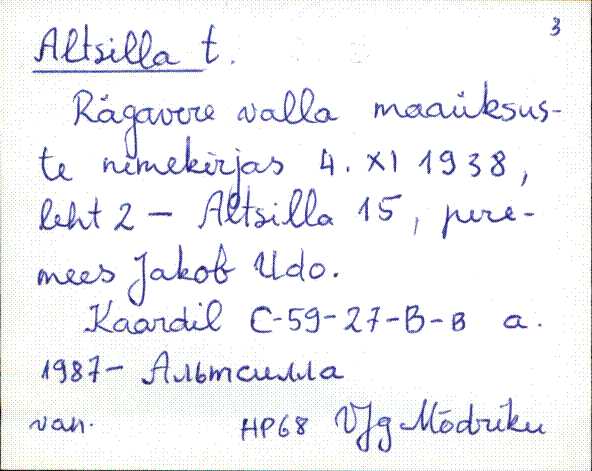 3
Altsilla t.
Rägavere valla maaüksus-
te nimekirjas 4. XI 1938,
leht 2 – Altsilla 15, pere-
mees Jakob Udo.
Kaardil C-59-27-B-в a.
1987 – Альтсилла
van. HP68 VJg Mõdriku